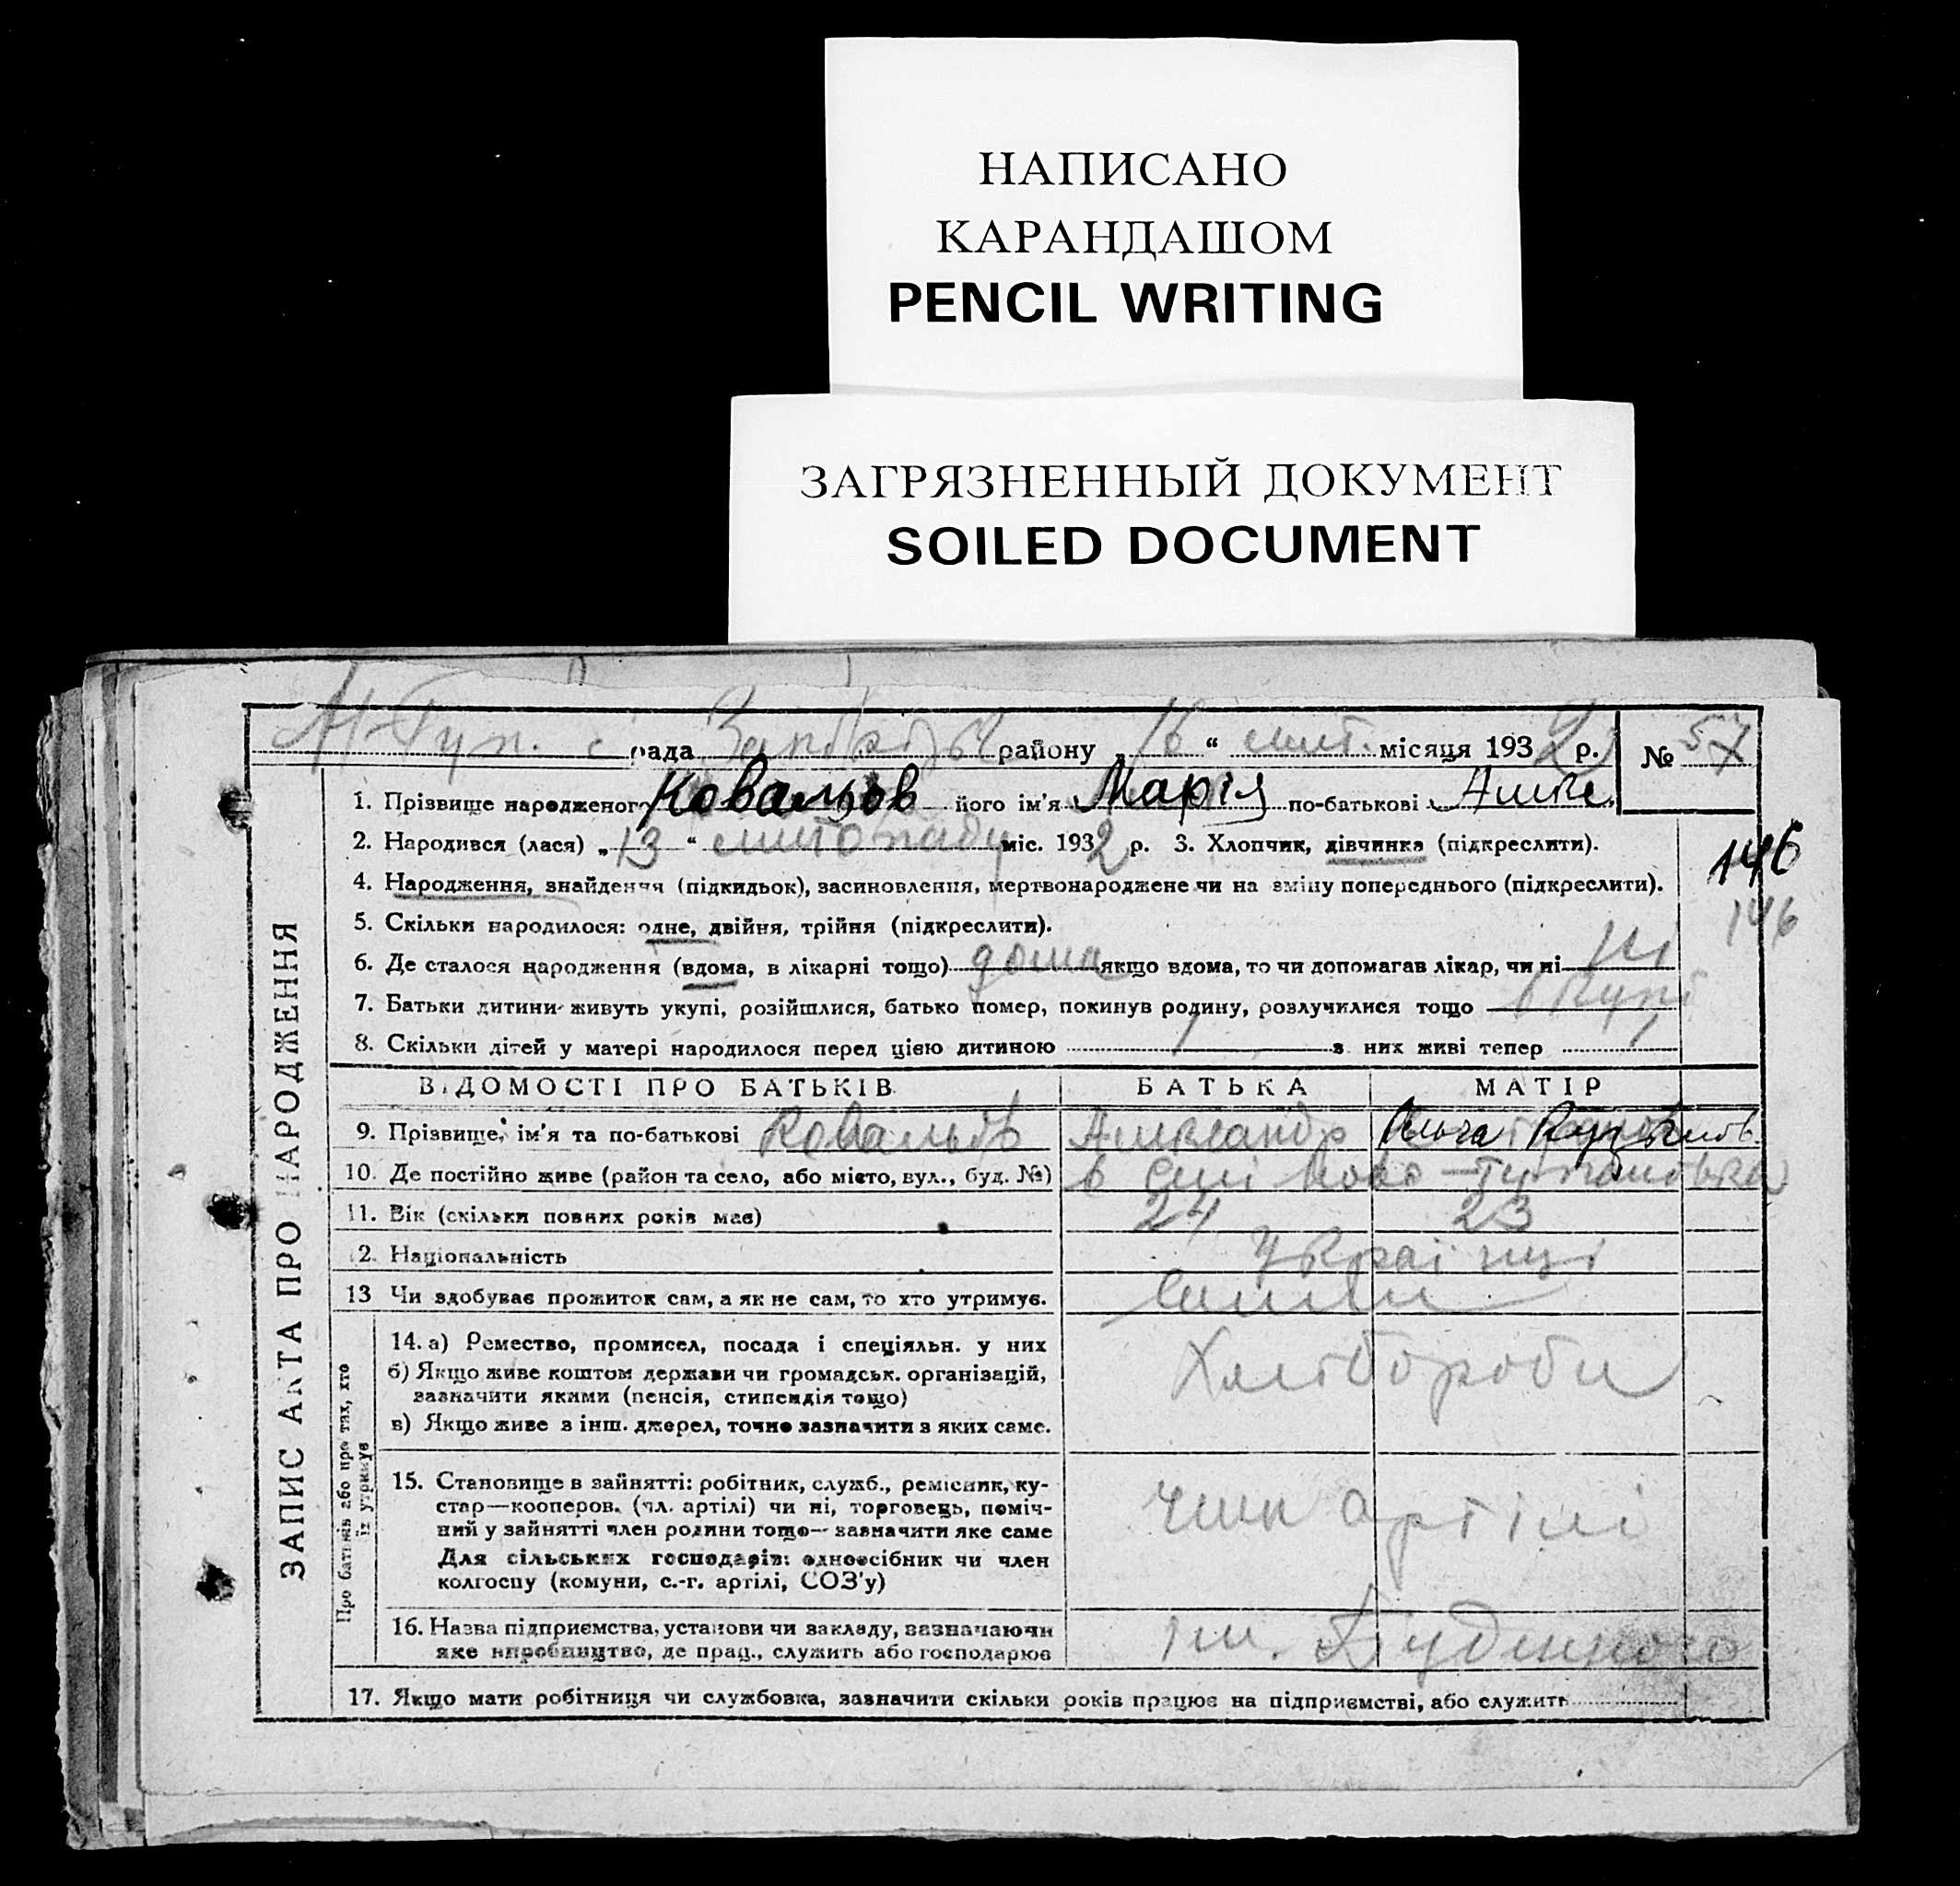 НАПИСАНО
КАРАНДАШОМ
PENCIL WRITING
ЗАГРЯЗНЕННЫЙ ДОКУМЕНТ
SOILED DOCUMENT
рада району „16“ лист. місяця 1932 р. № 57
1. Прізвище народженого Ковальов його ім'я Марія по-батькові
2. Народився (лася) „13“ листопаду міс. 1932 р. 3. Хлопчик, дівчинка (підкреслити).
146
4. Народження, знайдення (підкидьок), засиновлення, мертвонароджене чи на зміну попереднього (підкреслити).
146
5. Скільки народилося: одне, двійня, трійня (підкреслити).
6. Де сталося народження (вдома, в лікарні тощо) дома якщо вдома, то чи допомагав лікар, чи ні ні
7. Батьки дитини живуть укупі, розійшлися, батько помер, покинув родину, розлучилися тощо вкупі
8. Скільки дітей у матері народилося перед цією дитиною 1 з них живі тепер 1
ЗАПИС АКТА ПРО НАРОДЖЕННЯ
ВІДОМОСТІ ПРО БАТЬКІВ БАТЬКА МАТІР
9. Прізвище, ім'я та по-батькові Ковальов Александр
10. Де постійно живе (район та село, або місто, вул., буд. №) в селі Ново-
11. Вік (скільки повних років має) 24 23
12. Національність Українці
13 Чи здобуває прожиток сам, а як не сам, то хто утримує. Сами
Про батьків або про тих, хто їх утримує
14. а) Ремество, промисел, посада і спеціяльн. у них
б) Якщо живе коштом держави чи громадськ. організацій,
зазначити якими (пенсія, стипендія тощо)
в) Якщо живе з інш. джерел, точно зазначити з яких саме.
Хлібороби
15. Становище в зайнятті: робітник, служб., ремісник, ку-
стар—кооперов. (чл. артілі) чи ні, торговець, поміч-
ний у зайнятті член родини тощо— зазначити яке саме
Для сільських господарів: одноосібник чи член
колгоспу (комуни, с.-г. артілі, СОЗ'у)
член артілі
16. Назва підприємства, установи чи закладу, зазначаючи
яке виробництво, де прац., служить або господарює
ім. Будьоного
17. Якщо мати робітниця чи службовка, зазначити скільки років працює на підприємстві, або служить